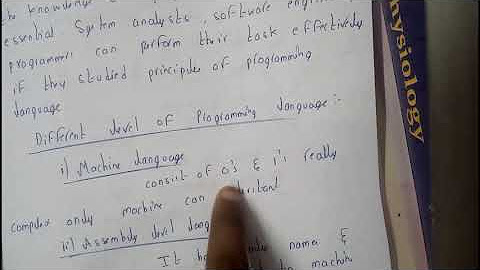 be knowledge
essential. System analysts, software engi
programmers can perform their task effectively
if they studied principles of programming
language
Different level of Programming language:-
i) Machine language
consist of 0's & 1's really
complex only machine can
ii) Assembly level lang
It ha name &
to machin
physiology